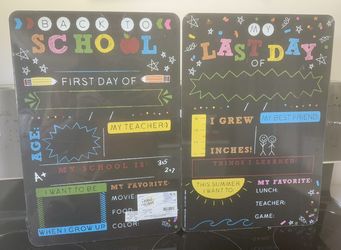 BACK TO
SCHOOL
FIRST DAY OF
AGE:
MY TEACHER:)
MY SCHOOL IS:
I WANT TO BE
WHEN I GROW UP
MY FAVORITE
MOVIE:
FOOD:
COLOR:
MY
LAST DAY
OF
I GREW
INCHES!
MY BEST FRIEND
THINGS I LEARNED:
THIS SUMMER
I WANT TO:
MY FAVORITE:
LUNCH:
TEACHER:
GAME: